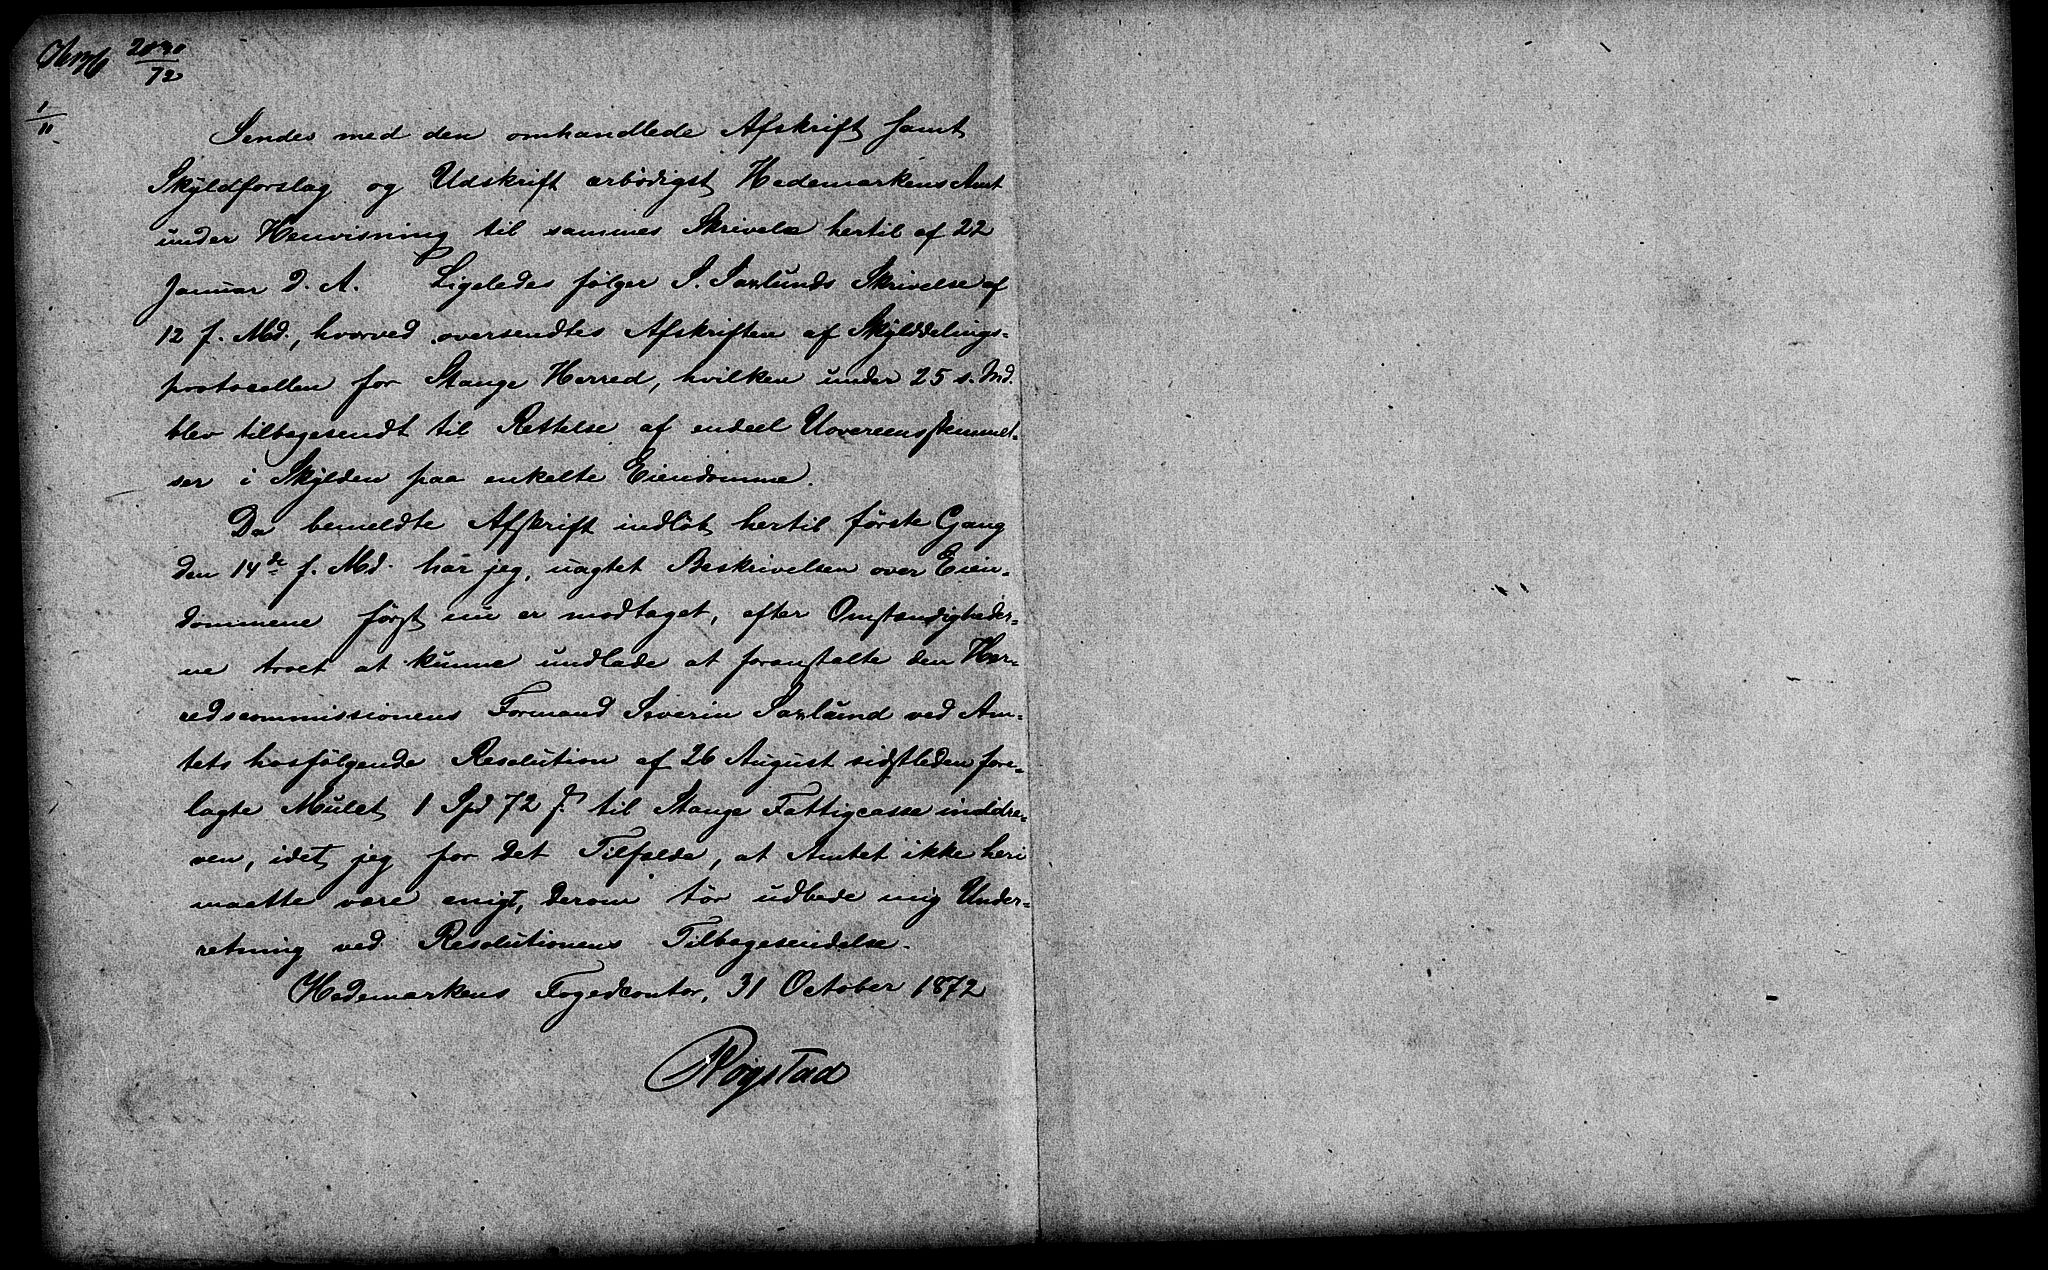 2030
72
1
11
Sendes med den omhandlede Afskrift samt
Skyldforslag og Udskrift ærbødigst Hedemarkens Amt
under Henvisning til sammes Skrivelse hertil af 22
Januar d. A. Ligeledes følger S. Saxlunds Skrivelse af
12 f. Md., hvorved oversendtes Afskriften af Skylddelings-
protocollen for Stange Herred, hvilken under 25 s. Md.
blev tilbagesendt til Rettelse af endeel Uovereensstemmel-
ser i Skylden paa enkelte Eiendomme.
Da bemeldte Afskrift indløb hertil første Gang
den 14de f. Md. har jeg, uagtet Beskrivelsen over Eien-
dommene først nu er modtaget, efter Omstændigheder-
ne troet at kunne undlade at foranstalte den Her-
redscommissionens Formand Severin Saxlund ved Am-
tets hosfølgende Resolution af 26 August sidstleden fore-
lagte Mulct 1 Spd 72 ß. til Stange Fattigcasse inddre-
ven, idet jeg for det Tilfælde, at Amtet ikke heri
maatte være enigt, derom tør udbede mig Under-
retning ved Resolutionens Tilbagesendelse.
Hedemarkens Fogedcontor, 31 October 1872
Rogstad